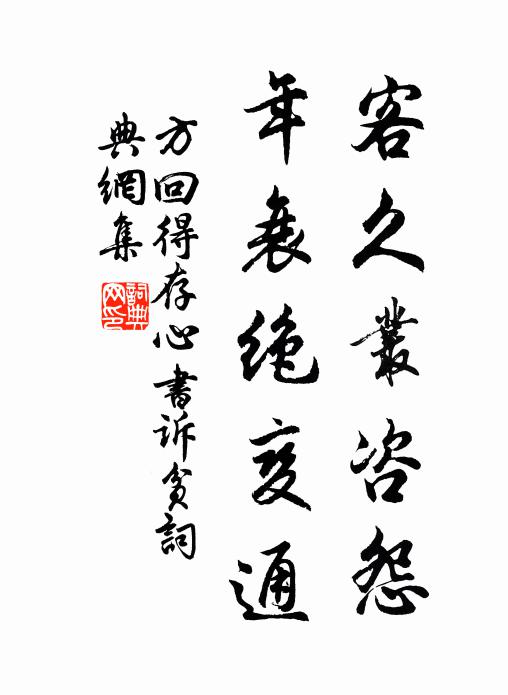 客久叢咨怨
年衰绝变通
方回得存心書诉貧詞
典網集
詞典网印